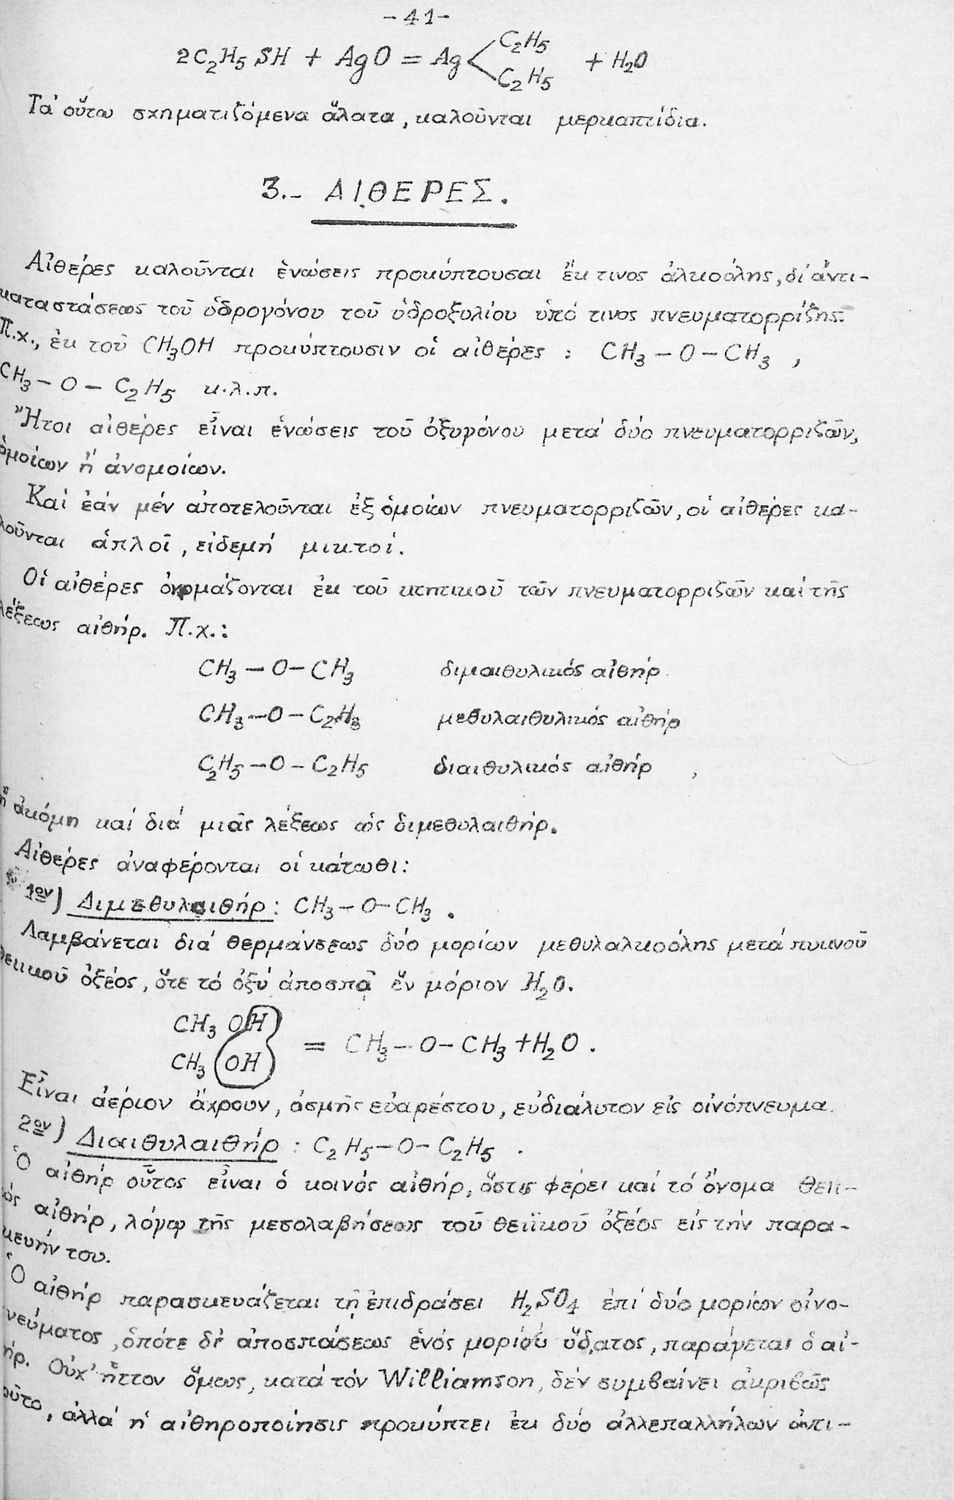 -41-
2C₂H₅SH + AgO = Ag < C₂H₅ C₂H₅ + H₂O
Τά οὕτω σχηματιζόμενα ἅλατα, καλοῦνται μερκαπτίδια.
3.- ΑΙΘΕΡΕΣ.
Αἰθέρες καλοῦνται ἑνώσεις προκύπτουσαι ἔκ τινος ἀλκοόλης, δι' ἀντι-
καταστάσεως τοῦ ὑδρογόνου τοῦ ὑδροξυλίου ὑπό τινος πνευματορρίζης.
Π.χ., ἐκ τοῦ CH₃OH προκύπτουσιν οἱ αἰθέρες : CH₃ – O – CH₃ ,
CH₃ – O – C₂H₅ κ.λ.π.
Ἤτοι αἰθέρες εἶναι ἑνώσεις τοῦ ὀξυγόνου μετά δύο πνευματορριζῶν,
ὁμοίων ἤ ἀνομοίων.
Καί ἐάν μέν ἀποτελοῦνται ἐξ ὁμοίων πνευματορριζῶν, οἱ αἰθέρες κα-
λοῦνται ἁπλοῖ, εἰδεμή μικτοί.
Οἱ αἰθέρες ὀνομάζονται ἐκ τοῦ κτητικοῦ τῶν πνευματορριζῶν καί τῆς
λέξεως αἰθήρ. Π.χ.:
CH₃ – O – CH₃ διμαιθυλικός αἰθήρ
CH₃ – O – C₂H₃ μεθυλαιθυλικός αἰθήρ
C₂H₅ – O – C₂H₅ διαιθυλικός αἰθήρ ,
ἤ ἀκόμη καί διά μιᾶς λέξεως ὡς διμεθυλαιθήρ.
Αἰθέρες ἀναφέρονται οἱ κάτωθι:
1ον) Διμεθυλαιθήρ : CH₃ – O – CH₃ .
Λαμβάνεται διά θερμάνσεως δύο μορίων μεθυλαλκοόλης μετά πυκνοῦ
θειικοῦ ὀξέος, ὅτε τό ὀξύ ἀποσπᾶ ἕν μόριον H₂O.
CH₃ OH
CH₃ OH = CH₃ – O – CH₃ + H₂O .
Εἶναι ἀέριον ἄχρουν, ὀσμῆς εὐαρέστου, εὐδιάλυτον εἰς οἰνόπνευμα.
2ον) Διαιθυλαιθήρ : C₂H₅ – O – C₂H₅ .
Ὁ αἰθήρ οὗτος εἶναι ὁ κοινός αἰθήρ, ὅστις φέρει καί τό ὄνομα θειι-
κός αἰθήρ, λόγῳ τῆς μεσολαβήσεως τοῦ θειϊκοῦ ὀξέος εἰς τήν παρα-
σκευήν του.
Ὁ αἰθήρ παρασκευάζεται τῇ ἐπιδράσει H₂SO₄ ἐπί δύο μορίων οἰνο-
πνεύματος, ὁπότε δι' ἀποσπάσεως ἑνός μορίου ὕδατος, παράγεται ὁ αἰ-
θήρ. Οὐχ' ἧττον ὅμως, κατά τόν Williamson, δέν συμβαίνει ἀκριβῶς
τοῦτο, ἀλλά ἡ αἰθηροποίησις προκύπτει ἐκ δύο ἀλλεπαλλήλων ἀντι-